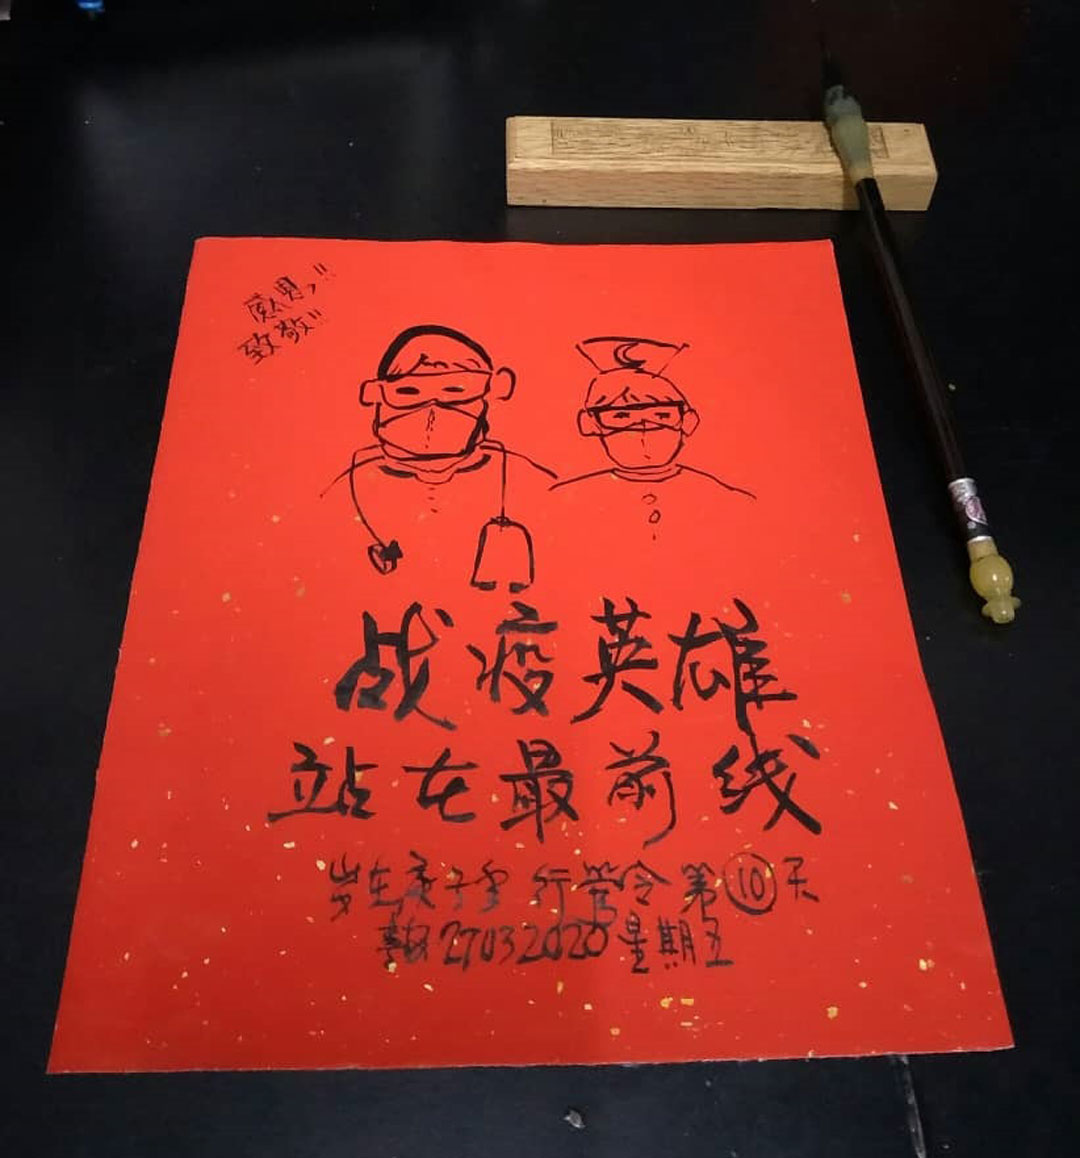 感恩!!
致敬!!
战疫英雄
站在最前线
岁在庚子 行管令 第⑩天
27032020 星期五